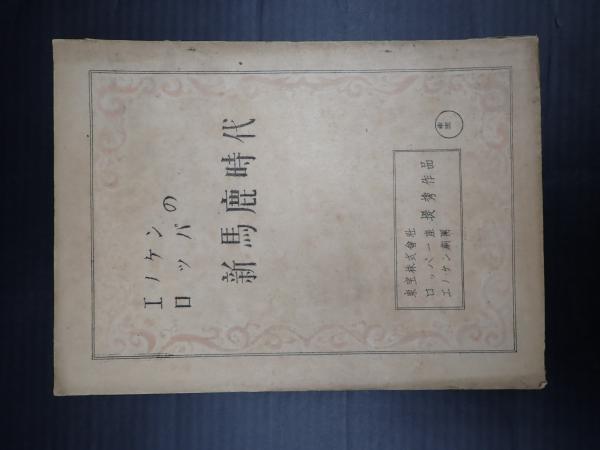 エノケンの
ロッパ
新馬鹿時代
東宝株式會社
ロッパ一座 提携作品
エノケン劇團